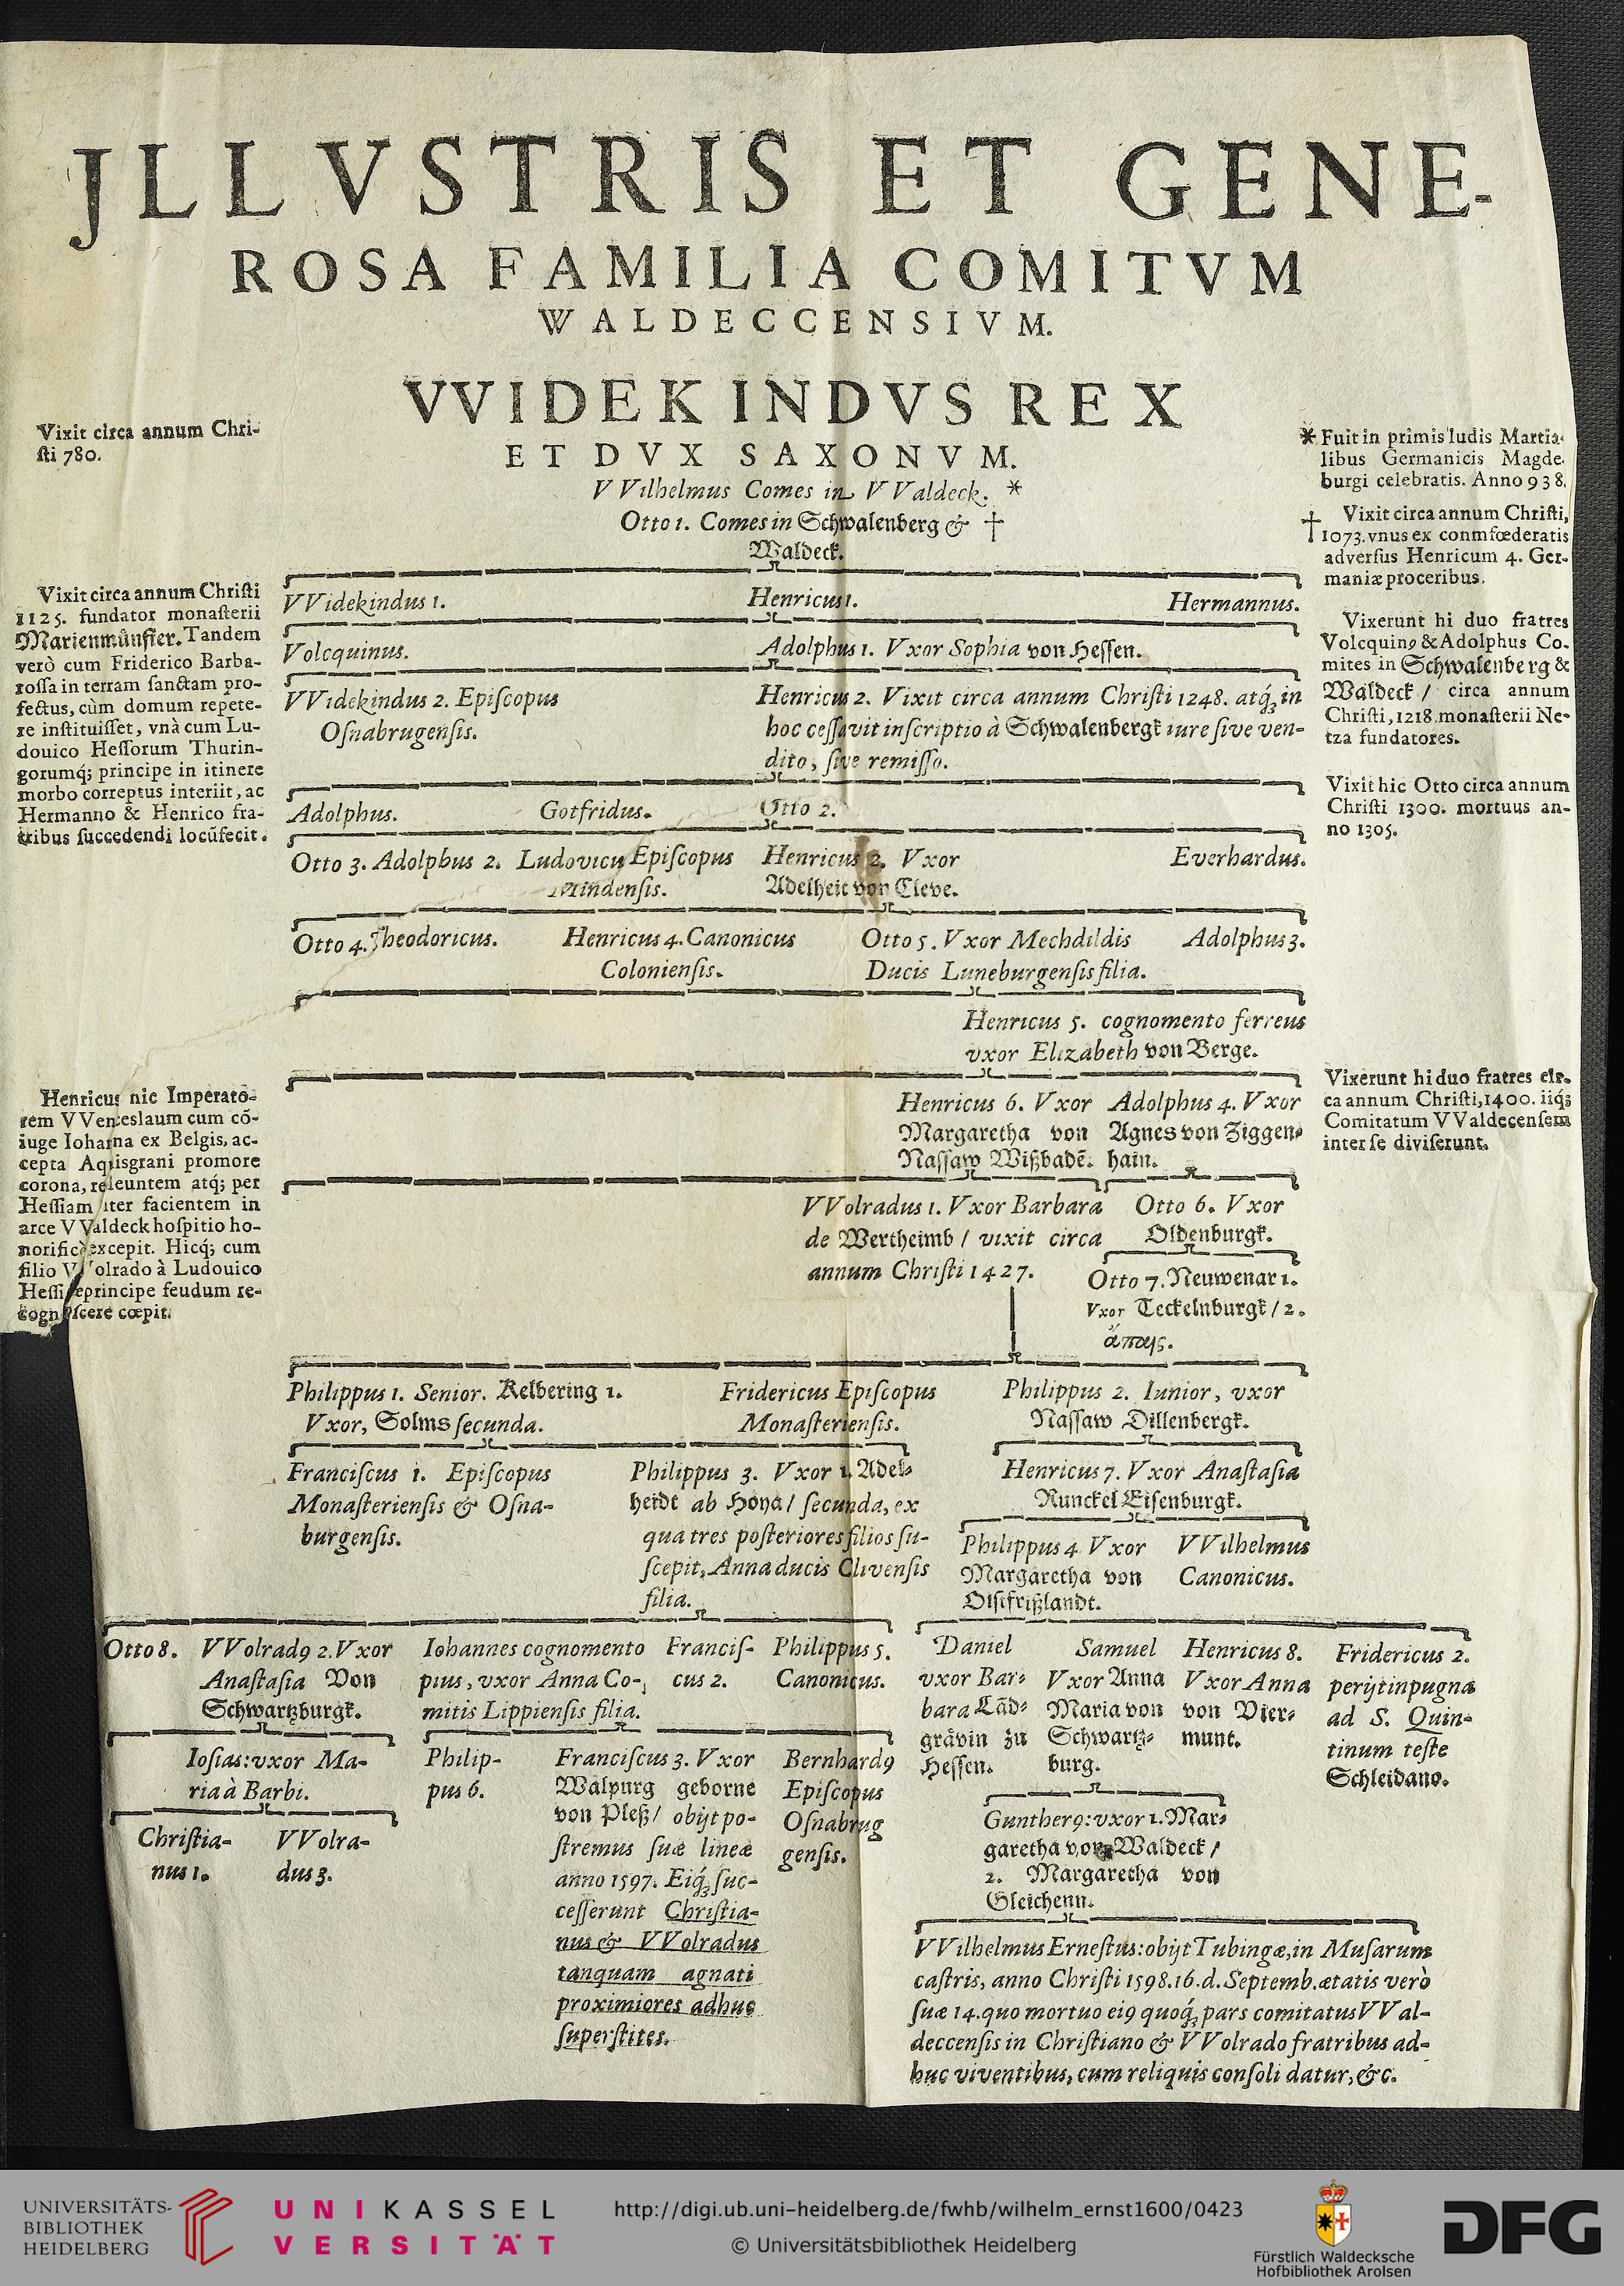 JLLVSTRIS ET GENE-
ROSA FAMILIA COMITVM
WALDECCENSIVM.
VVIDEKINDVS REX
ET DVX SAXONVM.
VVilhelmus Comes in VValdeck. *
Otto 1. Comes in Schwalenberg & †
Waldeck.
Vixit circa annum Chri-
sti 780.
* Fuit in primis ludis Martia-
libus Germanicis Magde-
burgi celebratis. Anno 938.
† Vixit circa annum Christi,
1073. vnus ex conmfœderatis
adversus Henricum 4. Ger-
maniæ proceribus.
Vixit circa annum Christi
1125. fundator monasterii
Marienmünster. Tandem
verò cum Friderico Barba-
rossa in terram sanctam pro-
fectus, cùm domum repete-
re instituisset, vnà cum Lu-
douico Hessorum Thurin-
gorumq́; principe in itinere
morbo correptus interiit, ac
Hermanno & Henrico fra-
tribus succedendi locũ fecit.
VVidekindus 1. Henricus 1. Hermannus.
Volcquinus. Adolphus 1. Vxor Sophia von Hessen.
Vixerunt hi duo fratres
Volcquin9 & Adolphus Co-
mites in Schwalenberg &
Waldeck / circa annum
Christi, 1218. monasterii Ne-
tza fundatores.
VVidekindus 2. Episcopus
Osnabrugensis.
Henricus 2. Vixit circa annum Christi 1248. atq́; in
hoc cessavit inscriptio à Schwalenbergk iure sive ven-
dito, sive remisso.
Adolphus. Gotfridus. Otto 2.
Vixit hic Otto circa annum
Christi 1300. mortuus an-
no 1305.
Otto 3. Adolphus 2. Ludovicu Episcopus
Mindensis.
Henricus 2. Vxor
Adelheit von Cleve.
Everhardus.
Otto 4. Theodoricus. Henricus 4. Canonicus
Coloniensis.
Otto 5. Vxor Mechdildis
Ducis Luneburgensis filia.
Adolphus 3.
Henricus 5. cognomento ferreus
vxor Elizabeth von Berge.
Henricus hic Imperato-
rem VVenceslaum cum cõ-
iuge Iohanna ex Belgis, ac-
cepta Aquisgrani promore
corona, reuntem atq; per
Hessiam iter facientem in
arce VValdeck hospitio ho-
norificè excepit. Hicq́; cum
filio VVolrado à Ludouico
Hessiæ principe feudum re-
cognoscere cœpit.
Henricus 6. Vxor
Margaretha von
Nassaw Wißbadẽ.
Adolphus 4. Vxor
Agnes von Ziggen-
hain.
Vixerunt hi duo fratres cir-
ca annum Christi, 1400. iiq́;
Comitatum VValdecensem
inter se diviserunt.
VVolradus 1. Vxor Barbara
de Wertheimb / vixit circa
annum Christi 1427.
Otto 6. Vxor
Oldenburgk.
Otto 7. Neuwenar 1.
Vxor Teckelnburgk / 2.
ἄπαις.
Philippus 1. Senior. Kelbering 1.
Vxor, Solms secunda.
Fridericus Episcopus
Monasteriensis.
Philippus 2. Iunior, vxor
Nassaw Dillenbergk.
Franciscus 1. Episcopus
Monasteriensis & Osna-
burgensis.
Philippus 3. Vxor 1. Adel-
heidt ab Hoya / secunda, ex
qua tres posteriores filios su-
scepit, Anna ducis Clivensis
filia.
Henricus 7. Vxor Anastasia
Runckel Eisenburgk.
Philippus 4 Vxor
Margaretha von
Ostfrißlandt.
VVilhelmus
Canonicus.
Otto 8. VVolrad9 2. Vxor
Anastasia Von
Schwartzburgk.
Iohannes cognomento
pius, vxor Anna Co-
mitis Lippiensis filia.
Francis-
cus 2.
Philippus 5.
Canonicus.
Daniel
vxor Bar-
bara Läd-
grävin zu
Hessen.
Samuel
Vxor Anna
Maria von
Schwartz-
burg.
Henricus 8.
Vxor Anna
von Vier-
munt.
Fridericus 2.
perijt in pugna
ad S. Quin-
tinum teste
Schleidano.
Iosias: vxor Ma-
ria à Barbi.
Philip-
pus 6.
Franciscus 3. Vxor
Walpurg geborne
von Pleß / obijt po-
stremus suæ lineæ
anno 1597. Eiq́; suc-
cesserunt Christia-
nus & VVolradus
tanquam agnati
proximiores adhuc
superstites.
Bernhard9
Episcopus
Osnabrug
gensis.
Christia-
nus 1.
VVolra-
dus 3.
Gunther9: vxor 1. Mar-
garetha von Waldeck /
2. Margaretha von
Gleichenn.
VVilhelmus Ernestus: obijt Tubingæ, in Musarum
castris, anno Christi 1598. 16. d. Septemb. ætatis verò
suæ 14. quo mortuo ei9 quoq́; pars comitatus VVal-
deccensis in Christiano & VVolrado fratribus ad-
huc viventibus, cum reliquis consoli datur, &c.
UNIVERSITÄTS-
BIBLIOTHEK
HEIDELBERG
UNIKASSEL
VERSITÄT
http://digi.ub.uni-heidelberg.de/fwhb/wilhelm_ernst1600/0423
© Universitätsbibliothek Heidelberg
Fürstlich Waldecksche
Hofbibliothek Arolsen
DFG